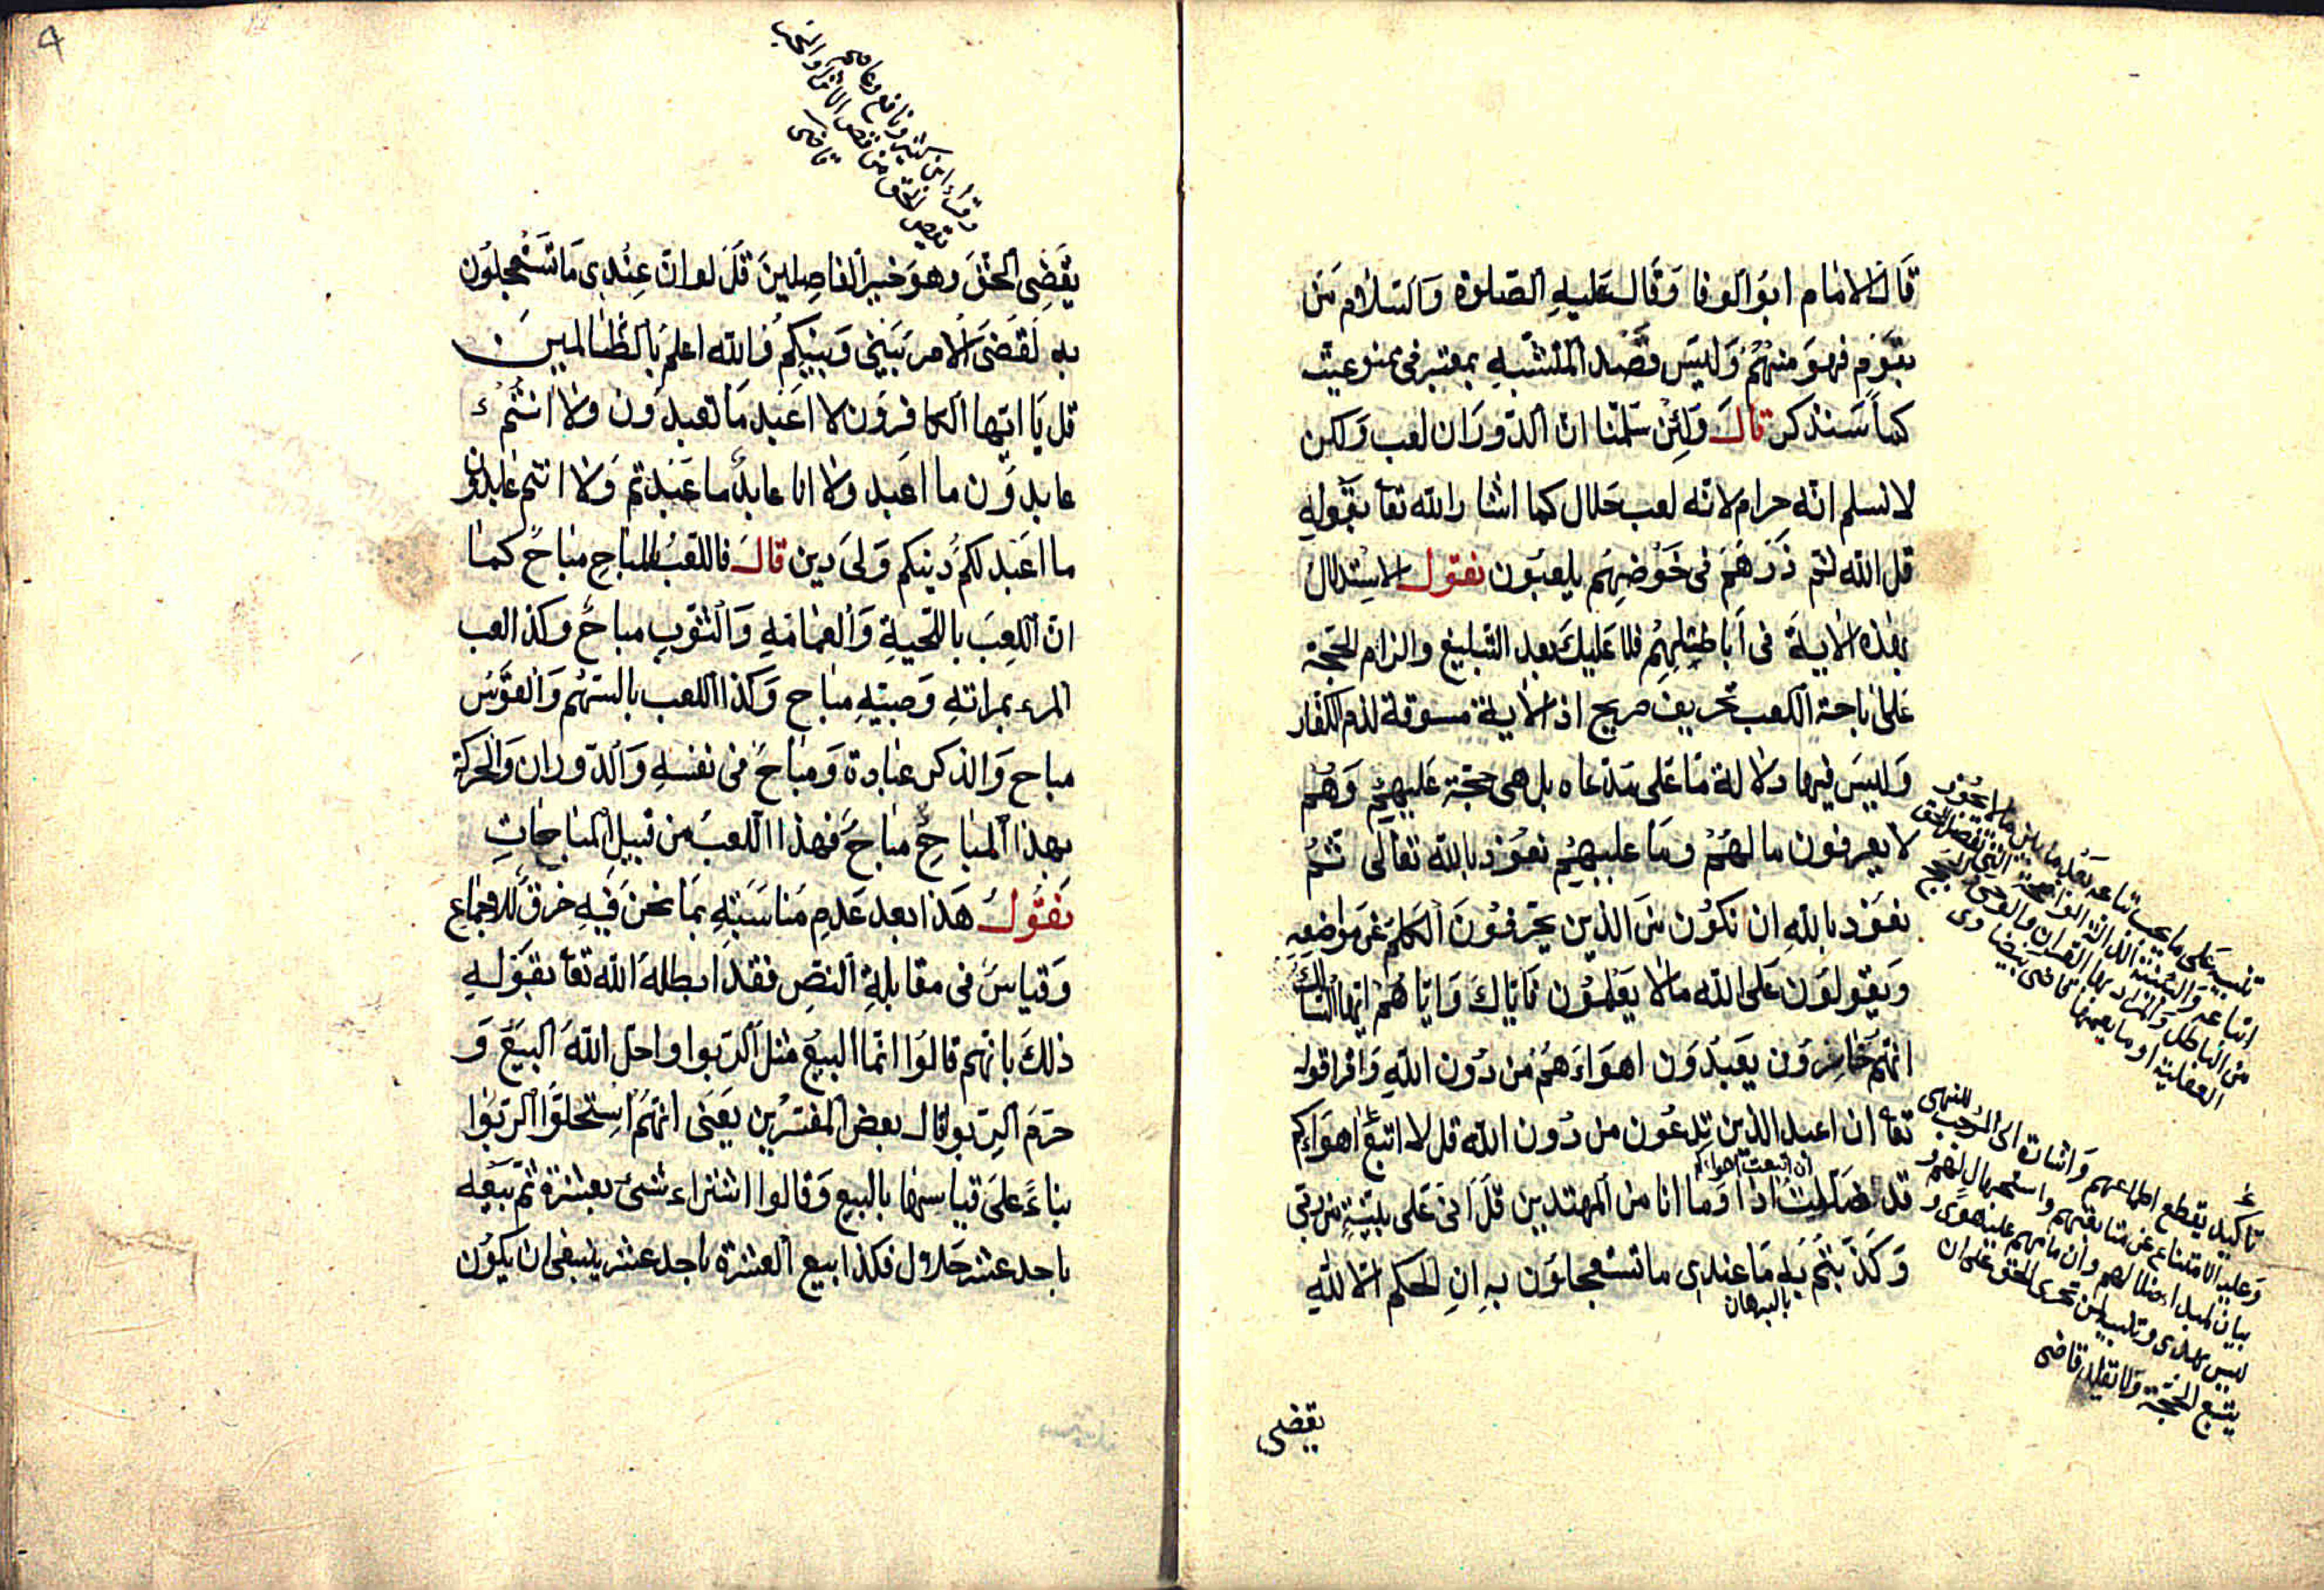 قال الامام ابو الوفا وقال عليه الصلوة والسلام من
بقوم فهو منهم وليس قصد المتشبه بمعتبر فى ممنوعيته
كما سنذكر قال ولئن سلمنا ان الدوران لعب ولكن
لا نسلم انه حرام لانه لعب حلال كما اشار الله تعا بقوله
قل الله ثم ذرهم فى خوضهم يلعبون نقول الاستدلال
بهذه الاية فى اباطيلهم فلا عليك بعد التبليغ والزام الحجة
على اباحة اللعب تحريف صريح اذ الاية مسوقة لذم الكفار
وليس فيها دلالة ما على مدعاه بل هى حجة عليهم وهم
لا يعرفون ما لهم وما عليهم نعوذ بالله تعالى ثم
نعوذ بالله ان نكون من الذين يحرفون الكلم عن مواضعه
ويقولون على الله ما لا يعلمون فاياك واياهم ايها السالك
انهم خاسرون يعبدون اهواءهم من دون الله واقرا قوله
تعا ان اعبد الذين تدعون من دون الله قل لا اتبع اهواءكم
ان اتبعت اهواءكم
قد ضللت اذا وما انا من المهتدين قل انى على بينة من ربى
وكذبتم به ما عندى ما تستعجلون به ان الحكم الا لله
بالبرهان
تنبيه على ما يجب اتباعه بعد ما بين ما لا يجوز
اتباعه والبينة الدلالة الواضحة التى تفصل الحق
من الباطل والمراد بها القران والوحى او الحجج
العقلية او ما يعمها قاضى بيضاوى
تاكيد يقطع اطماعهم واشارة الى الموجب للنهى
وعلية الامتناع عن متابعتهم واستجهال لهم و
بيان لمبدا ضلالهم وان ما هم عليه هوى و
ليس بهدى وتنبيه لمن تحرى الحق على ان
يتبع الحجة ولا يقلد قاضى
يقضى
9
وقراء ابن كثير ونافع وعاصم
يقص الحق من قص الاثر او القص
قاضى
يقضى الحق وهو خير الفاصلين قل لو ان عندى ما تستعجلون
به لقضى الامر بينى وبينكم والله اعلم بالظالمين
قل يا ايها الكافرون لا اعبد ما تعبدون ولا انتم
عابدون ما اعبد ولا انا عابد ما عبدتم ولا انتم عابدون
ما اعبد لكم دينكم ولى دين قال فاللعب بالمباح مباح كما
ان اللعب باللحية والعمامة والثوب مباح وكذا لعب
المرء بمراته وصبيه مباح وكذا اللعب بالسهم والقوس
مباح والذكر عبادة ومباح فى نفسه والدوران والحركة
بهذا المباح مباح فهذا اللعب من قبيل المباحات
نقول هذا بعد عدم مناسبته بما نحن فيه خرق للاجماع
وقياس فى مقابلة النص فقد ابطله الله تعا بقوله
ذلك بانهم قالوا انما البيع مثل الربوا واحل الله البيع و
حرم الربوا قال بعض المفسرين يعنى انهم استحلوا الربوا
بناء على قياسها بالبيع وقالوا اشتراء شئ بعشرة ثم بيعه
باحد عشر حلال فكذا بيع العشرة باحد عشر ينبغى ان يكون